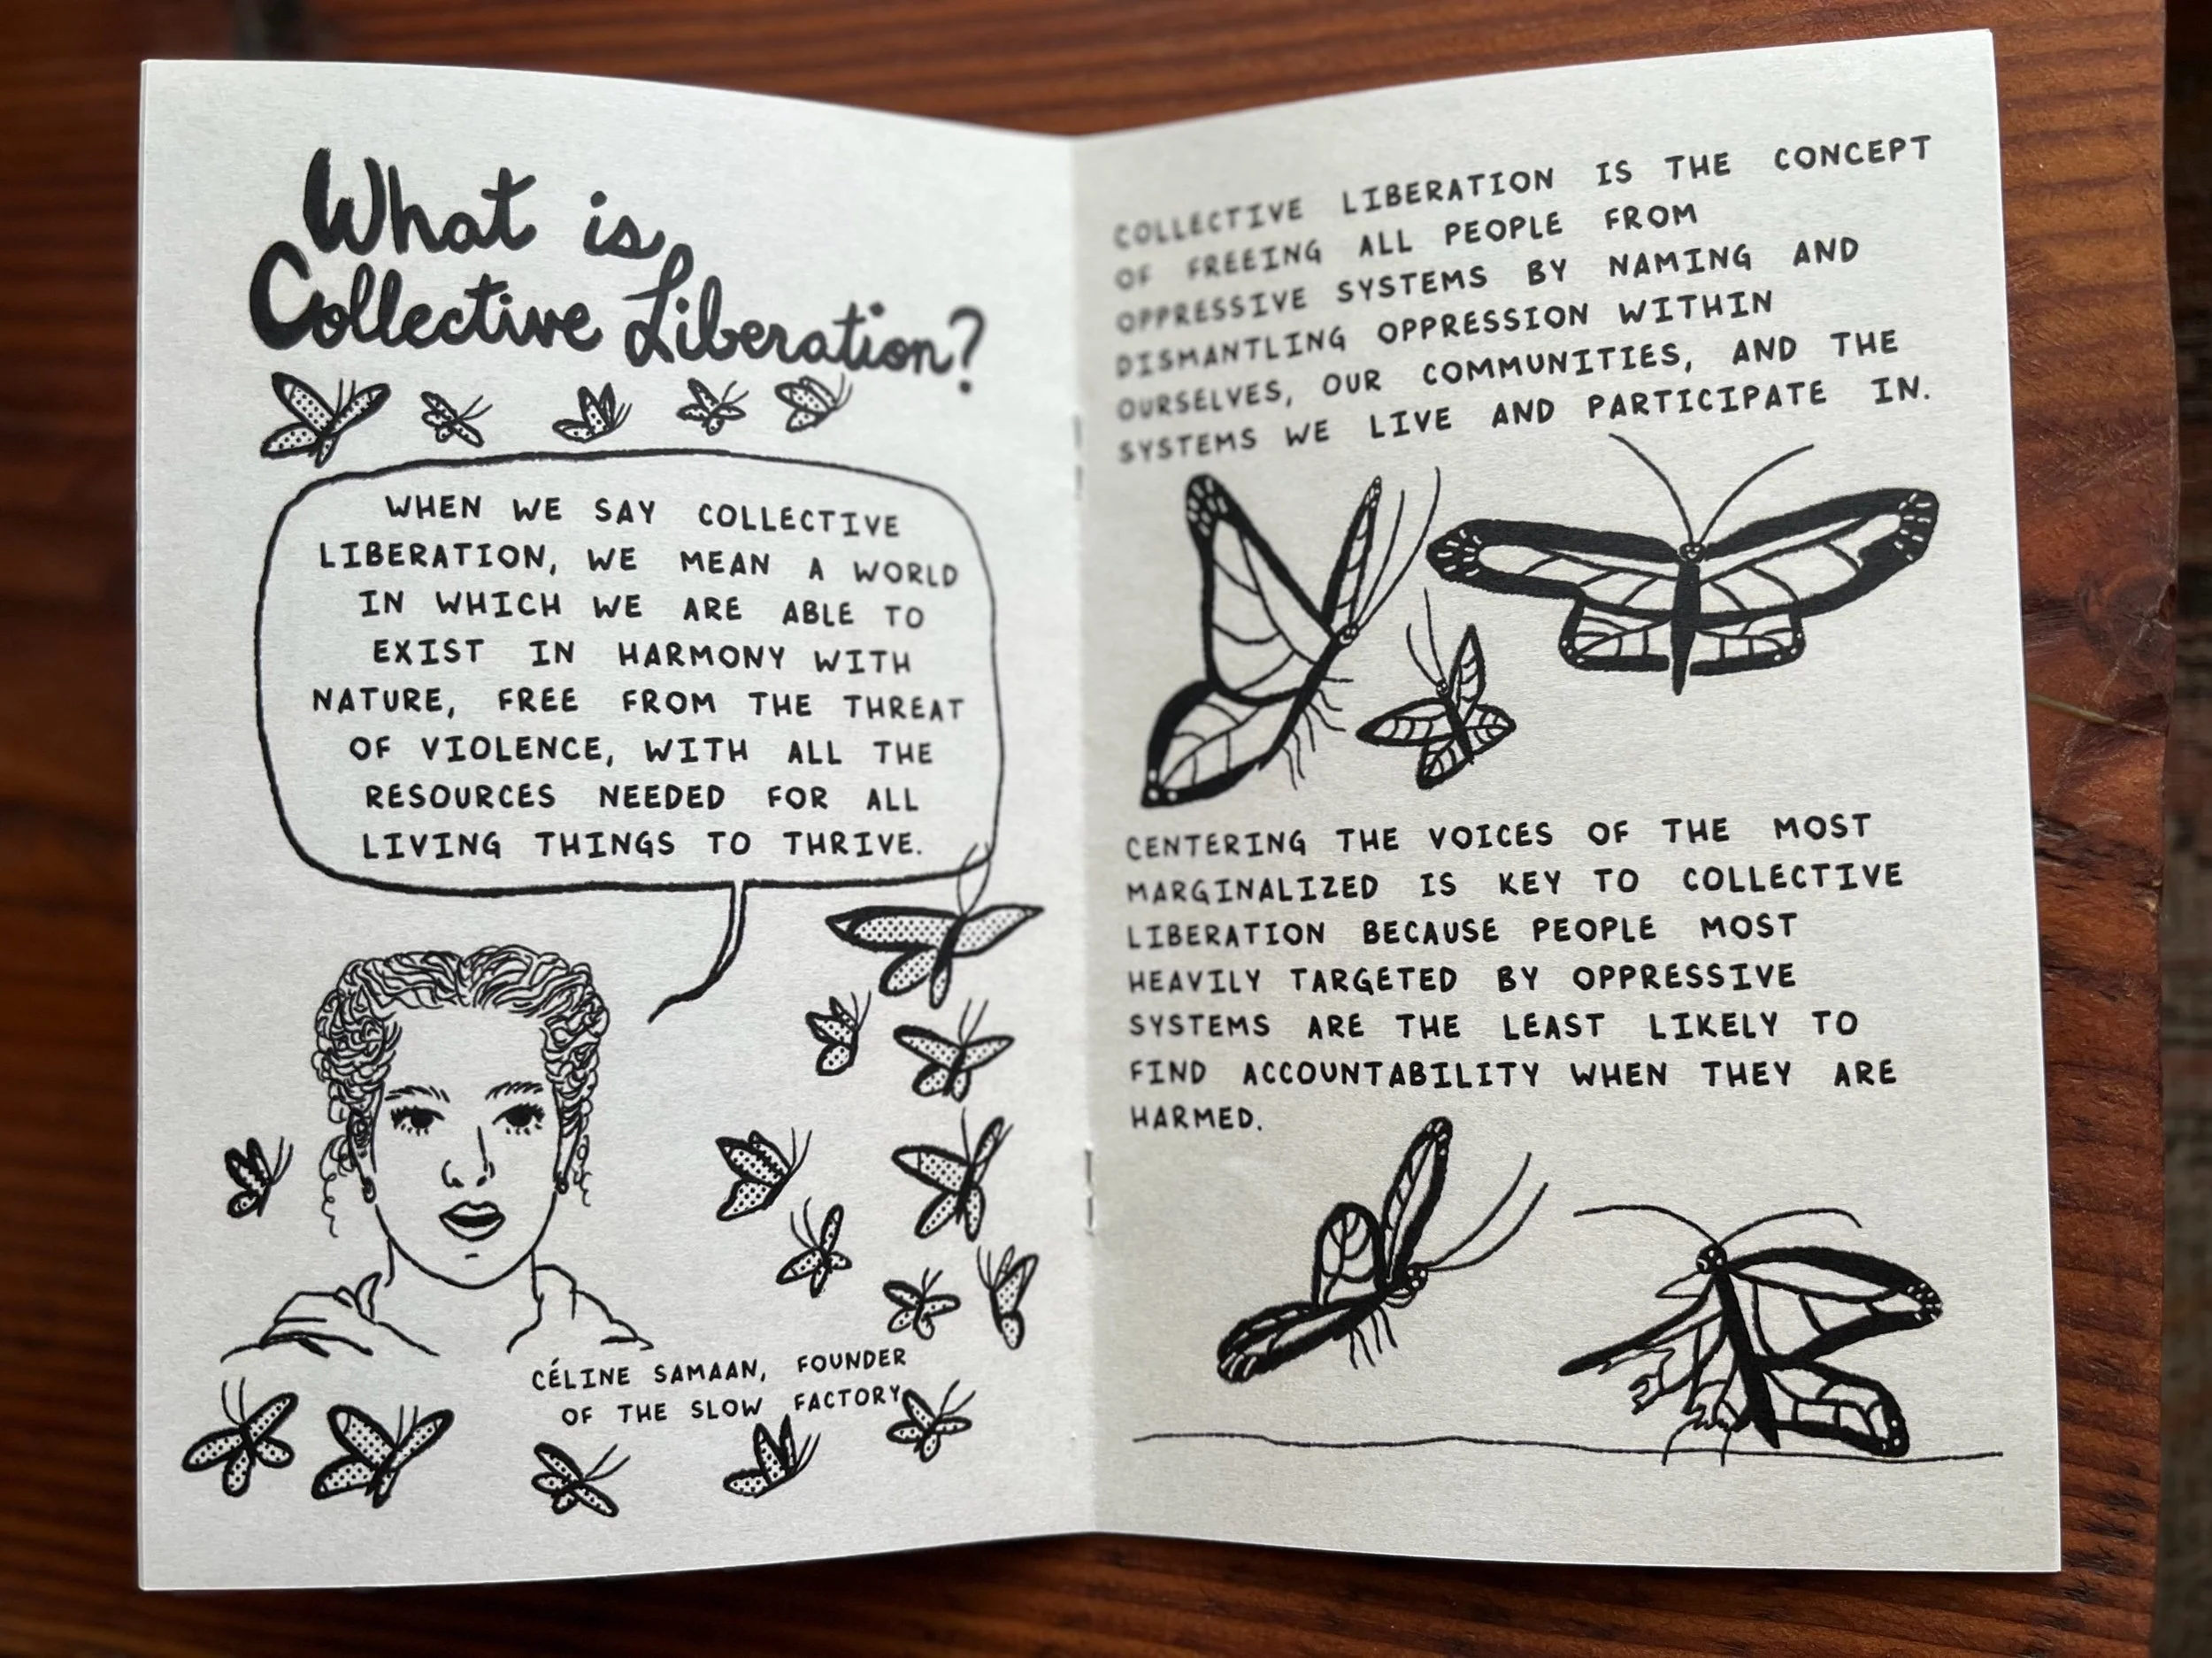 What is
Collective Liberation?
WHEN WE SAY COLLECTIVE
LIBERATION, WE MEAN A WORLD
IN WHICH WE ARE ABLE TO
EXIST IN HARMONY WITH
NATURE, FREE FROM THE THREAT
OF VIOLENCE, WITH ALL THE
RESOURCES NEEDED FOR ALL
LIVING THINGS TO THRIVE.
CÉLINE SAMAAN, FOUNDER
OF THE SLOW FACTORY
COLLECTIVE LIBERATION IS THE CONCEPT
OF FREEING ALL PEOPLE FROM
OPPRESSIVE SYSTEMS BY NAMING AND
DISMANTLING OPPRESSION WITHIN
OURSELVES, OUR COMMUNITIES, AND THE
SYSTEMS WE LIVE AND PARTICIPATE IN.
CENTERING THE VOICES OF THE MOST
MARGINALIZED IS KEY TO COLLECTIVE
LIBERATION BECAUSE PEOPLE MOST
HEAVILY TARGETED BY OPPRESSIVE
SYSTEMS ARE THE LEAST LIKELY TO
FIND ACCOUNTABILITY WHEN THEY ARE
HARMED.